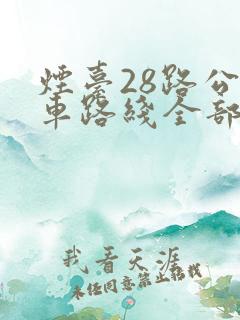 煙臺28路公
車路綫全部
我看天涯
未经同意禁止搬载